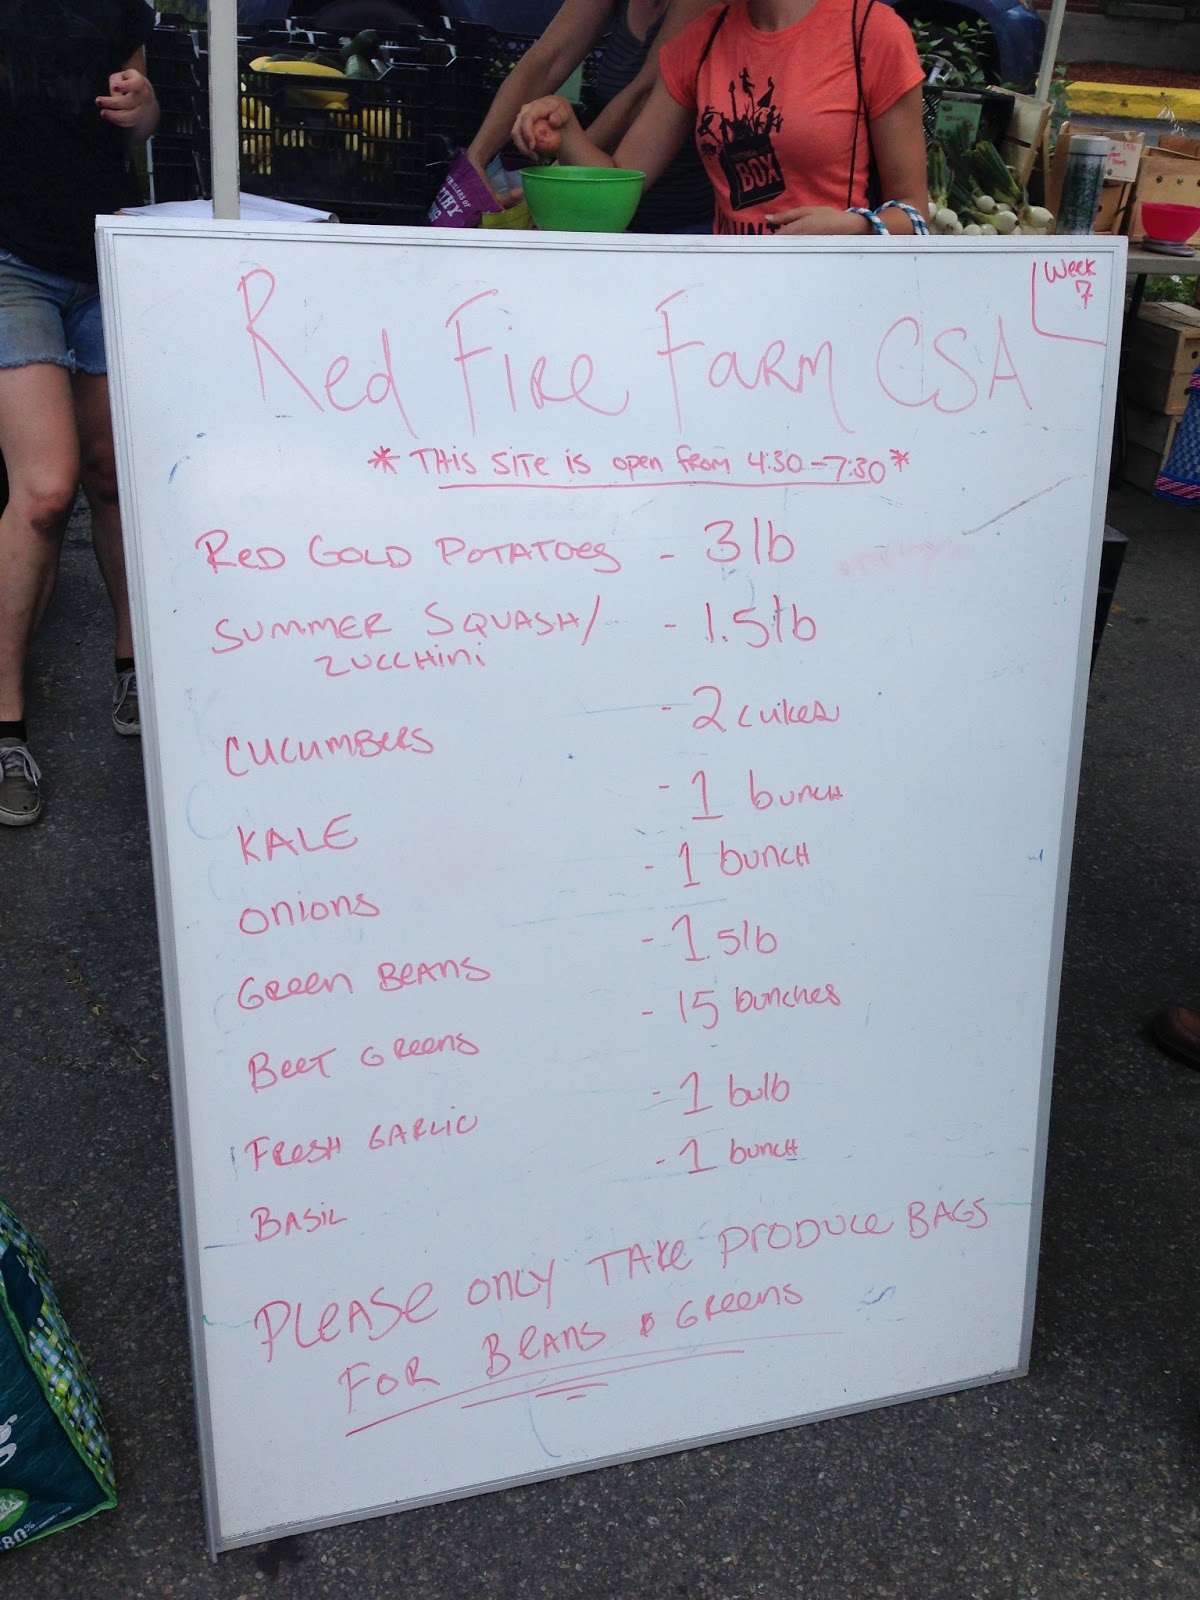 BOX
Week
7
Red Fire Farm CSA
* This site is open from 4:30-7:30 *
Red Gold Potatoes - 3 lb
Summer Squash/ - 1.5 lb
Zucchini
Cucumbers - 2 cukes
Kale - 1 bunch
Onions - 1 bunch
Green Beans - 1.5 lb
Beet Greens - 15 bunches
Fresh Garlic - 1 bulb
Basil - 1 bunch
Please only take produce bags
for beans & greens
80%